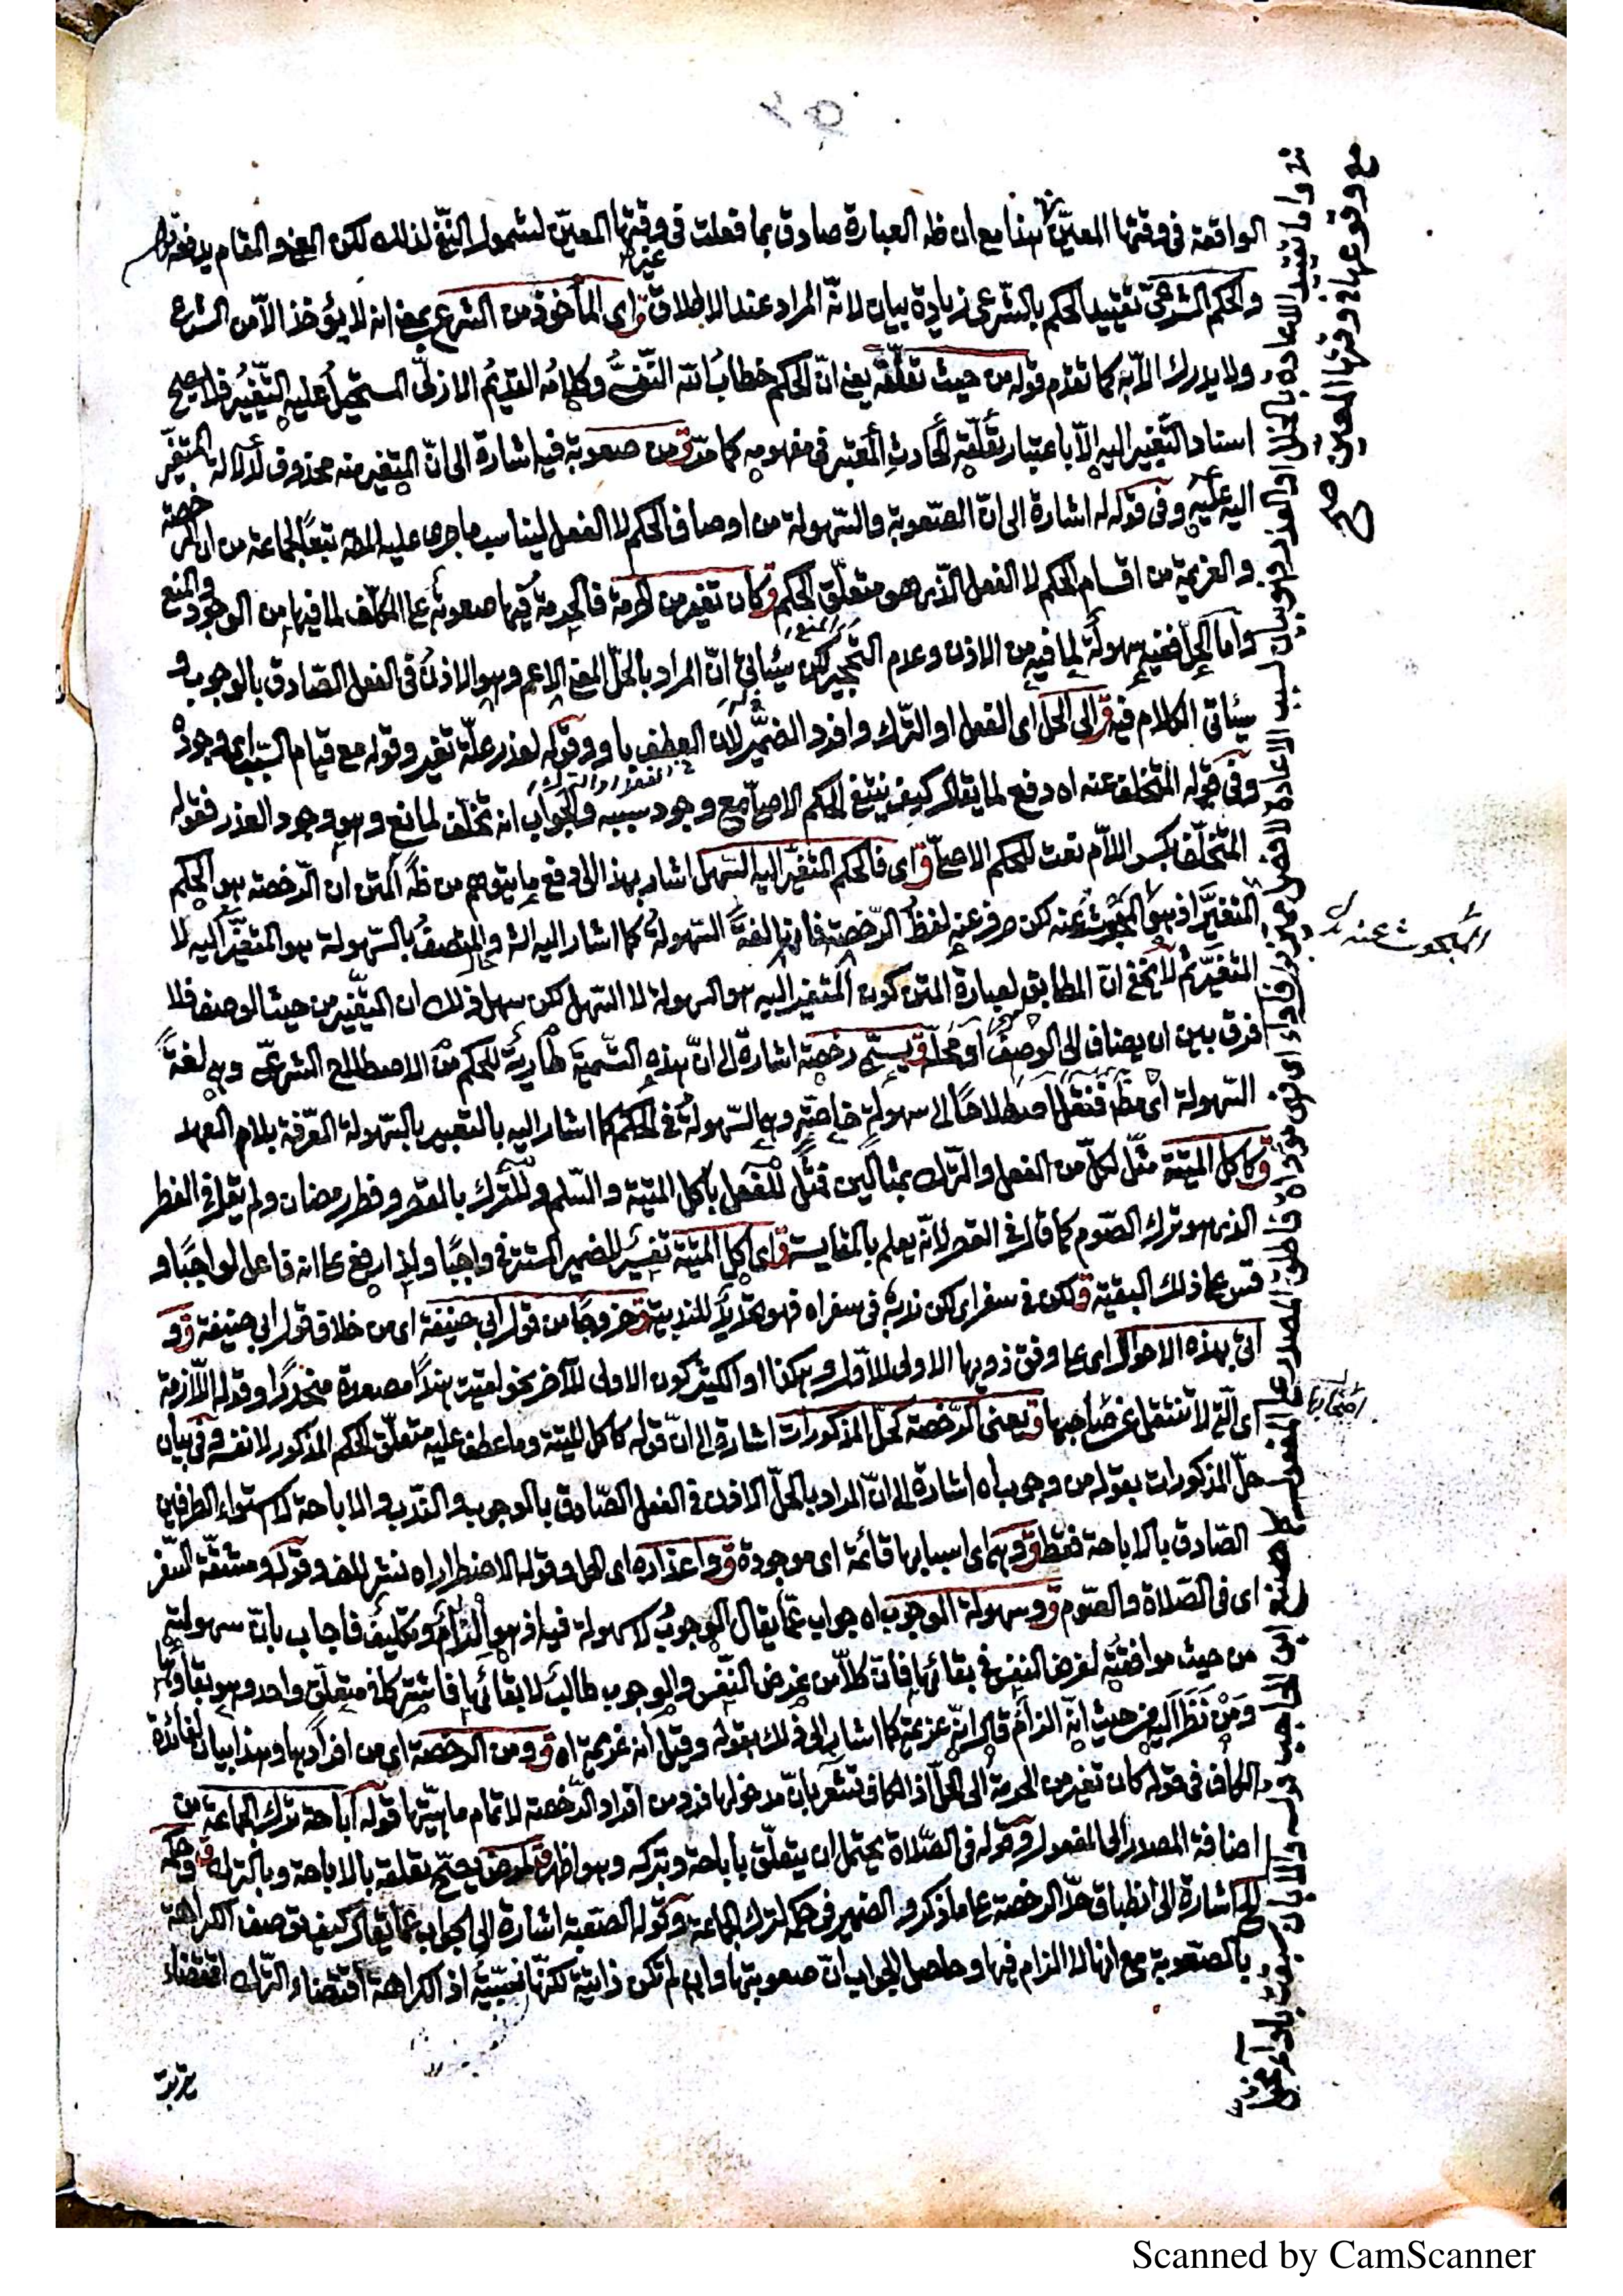 ٩٢
الواقعة في وقتها المعيّن هذا مع ان ظه العبارة صادق بما فعلت في وقتها المعيّن لشمول النفي لذلك لكن المعنى والمقام يدفعه
غيرها
والحكم الشرعيّ تقييد الحكم بالشّرعي زيادة بيان لانّه المراد عند الاطلاق ق اي المأخوذ من الشرع يعني انه لا يؤخذ الاّ من الشرع
ولا يدرك الاّ به كما تقدم قوله من حيث تعلّقه يعني انّ الحكم خطاب الله النّفسي وكلامه القديم الازليّ المستحيل عليه التّغيّر فلا يصح
اسناد التّغير اليه الاّ باعتبار تعلّقه الحادث المعتبر في مفهومه كما مرّ ق من صعوبة فيه اشارة الى انّ المتغير منه محذوف لدلالة المتغيّر
اليه عليه وفي قوله له اشارة الى انّ الصّعوبة والسّهولة من اوصاف الحكم لا الفعل ليناسب ما جرى عليه المص تبعًا لجماعة من ان الرخصة
والعزيمة من اقسام الحكم لا الفعل الذي هو متعلّق الحكم ق كان تغير من الحرمة فالحرمة فيها صعوبة على المكلّف لما فيها من الوجود والمنع
وامّا الحلّ ففيه سهولة لما فيه من الاذن وعدم التّحجير لكن سيأتي انّ المراد بالحلّ المعنى الاعم وهو الاذن في الفعل الصّادق بالوجوب و
سيأتي الكلام فيه ق الى الحلّ اى الفعل او التّرك وافرد الضمير لانّ العطف باو وقوله لعذر علّة تغير وقوله مع قيام السّبب اى وجوده
وفي قوله المتخلف عنه اه دفع لما يقال كيف ينتفي الحكم الاصليّ مع وجود سببه والجواب انه تخلّف لمانع وهو وجود العذر فقوله
المتخلّف بكسر اللاّم نعت للحكم الاصليّ ق اى فالحكم المتغيّر اليه السّهل اشار بهذا الى دفع ما يتوهم من ظه المتن ان الرّخصة هو الحكم
المتغيَّر اذ هو المبحوث عنه لكن صرفه عنه لفظ الرّخصة فانها لغةً السّهولة كما اشار اليه الش والمتّصف بالسّهولة هو المتغيّر اليه لا
المتغيَّر ثمّ لا يخفى انّ المطابق لعبارة المتن كون المتغير اليه هو السهولة لا السّهل لكن سهل ذلك ان التغيّر من حيث الوصف فلا
فرق بين ان يضاف الى الوصف او محلّه ق يسمّى رخصة اشارة الى انّ هذه التّسمية طارئة للحكم من الاصطلاح الشرعيّ وهي لغةً
السّهولة اى مطلقا فنقل اصطلاحًا الى سهولة خاصّة وهي السّهولة في الحكم كما اشار اليه بالتعبير بالسّهولة المعرّفة بلام العهد
ق كاكل الميتة مثّل لكلّ من الفعل والتّرك بمثالين فمثّل للفعل باكل الميتة والسّلم وللتّرك بالقصر وفطر رمضان ولم يقل في الفطر
الذي هو ترك الصّوم كما قال في القصر لانّه يعلم بالمقايسة ق اى اكل الميتة تفسير للضمير المستتر في واجبًا ولذا رفع على انه فاعل لواجبًا و
قس على ذلك البقية ق لكن في سفر اى لكن ندبه في سفر اه فهو تعليل للندبية ق خروجًا من قول ابي حنيفة اى من خلاف قول ابي حنيفة ق و
اتى بهذه الاحوال اى على وفق ذويها الاولى للاوّل وهكذا والكثير كون الاولى للآخر نحو لقيت هندًا مصعدة منحدرًا وقوله اللاّزمة
اى الّتي لا تنتقل عن صاحبها ق يعني الرّخصة كحلّ المذكورات اشارة الى انّ قوله كاكل الميتة وما عطف عليه متعلّق الحكم المذكور لا نفسه وفي بيان
حلّ المذكورات بقوله من وجوب اه اشارة الى انّ المراد بالحلّ الاذن في الفعل الصّادق بالوجوب والنّدب والاباحة لا استواء الطرفين
الصّادق بالاباحة فقط ق وهي اى اسبابها قائمة اى موجودة ق واعذاره اى الحل وقوله الاضطرار اه نشر للف وقوله ومشقّة السّفر
اى في الصّلاة والصّوم ق وسهولة الوجوب اه جواب عمّا يقال الوجوب لا سهولة فيه اذ هو الزام وتكليف فاجاب بانّ سهولته
من حيث موافقته لغرض النفس في بقائها فانّ كلاّ من غرض النّفس والوجوب طالب لابقائها فاشتركا في متعلّق واحد وهو بقاؤها
ومن نظر اليه من حيث انّه الزام قال انّه عزيمة كما اشار الى ذلك بقوله وقيل انه عزيمة اه ق ومن الرخصة اى من افرادها وهذا بيان لفائدة
الكاف في قوله كان تغير من الحرمة الى الحلّ اذ الكاف تشعر بانّ مدخولها فرد من افراد الرّخصة لا تمام ماهيّتها قوله اباحة ترك الجماعة من
اضافة المصدر الى المفعول وقوله في الصّلاة يحتمل ان يتعلّق باباحة وبتركه وهو اظهر ق لمرض يصحّ تعلقه بالاباحة وبالترك ق وحكمه
الخ اشارة الى انطباق حدّ الرخصة على ما ذكر والضمير في حكمه لترك الجماعة وقوله الصّعبة اشارة الى الجواب عمّا يقال كيف توصف الكراهة
بالصّعوبة مع انها لا الزام فيها وحاصل الجواب انّ صعوبتها وان لم تكن ذاتيّة لكنّها نسبيّة اذ الكراهة اقتضاء التّرك اقتضاء
المبحوث عنه
مع وقوعها في وقتها المعيّن صح